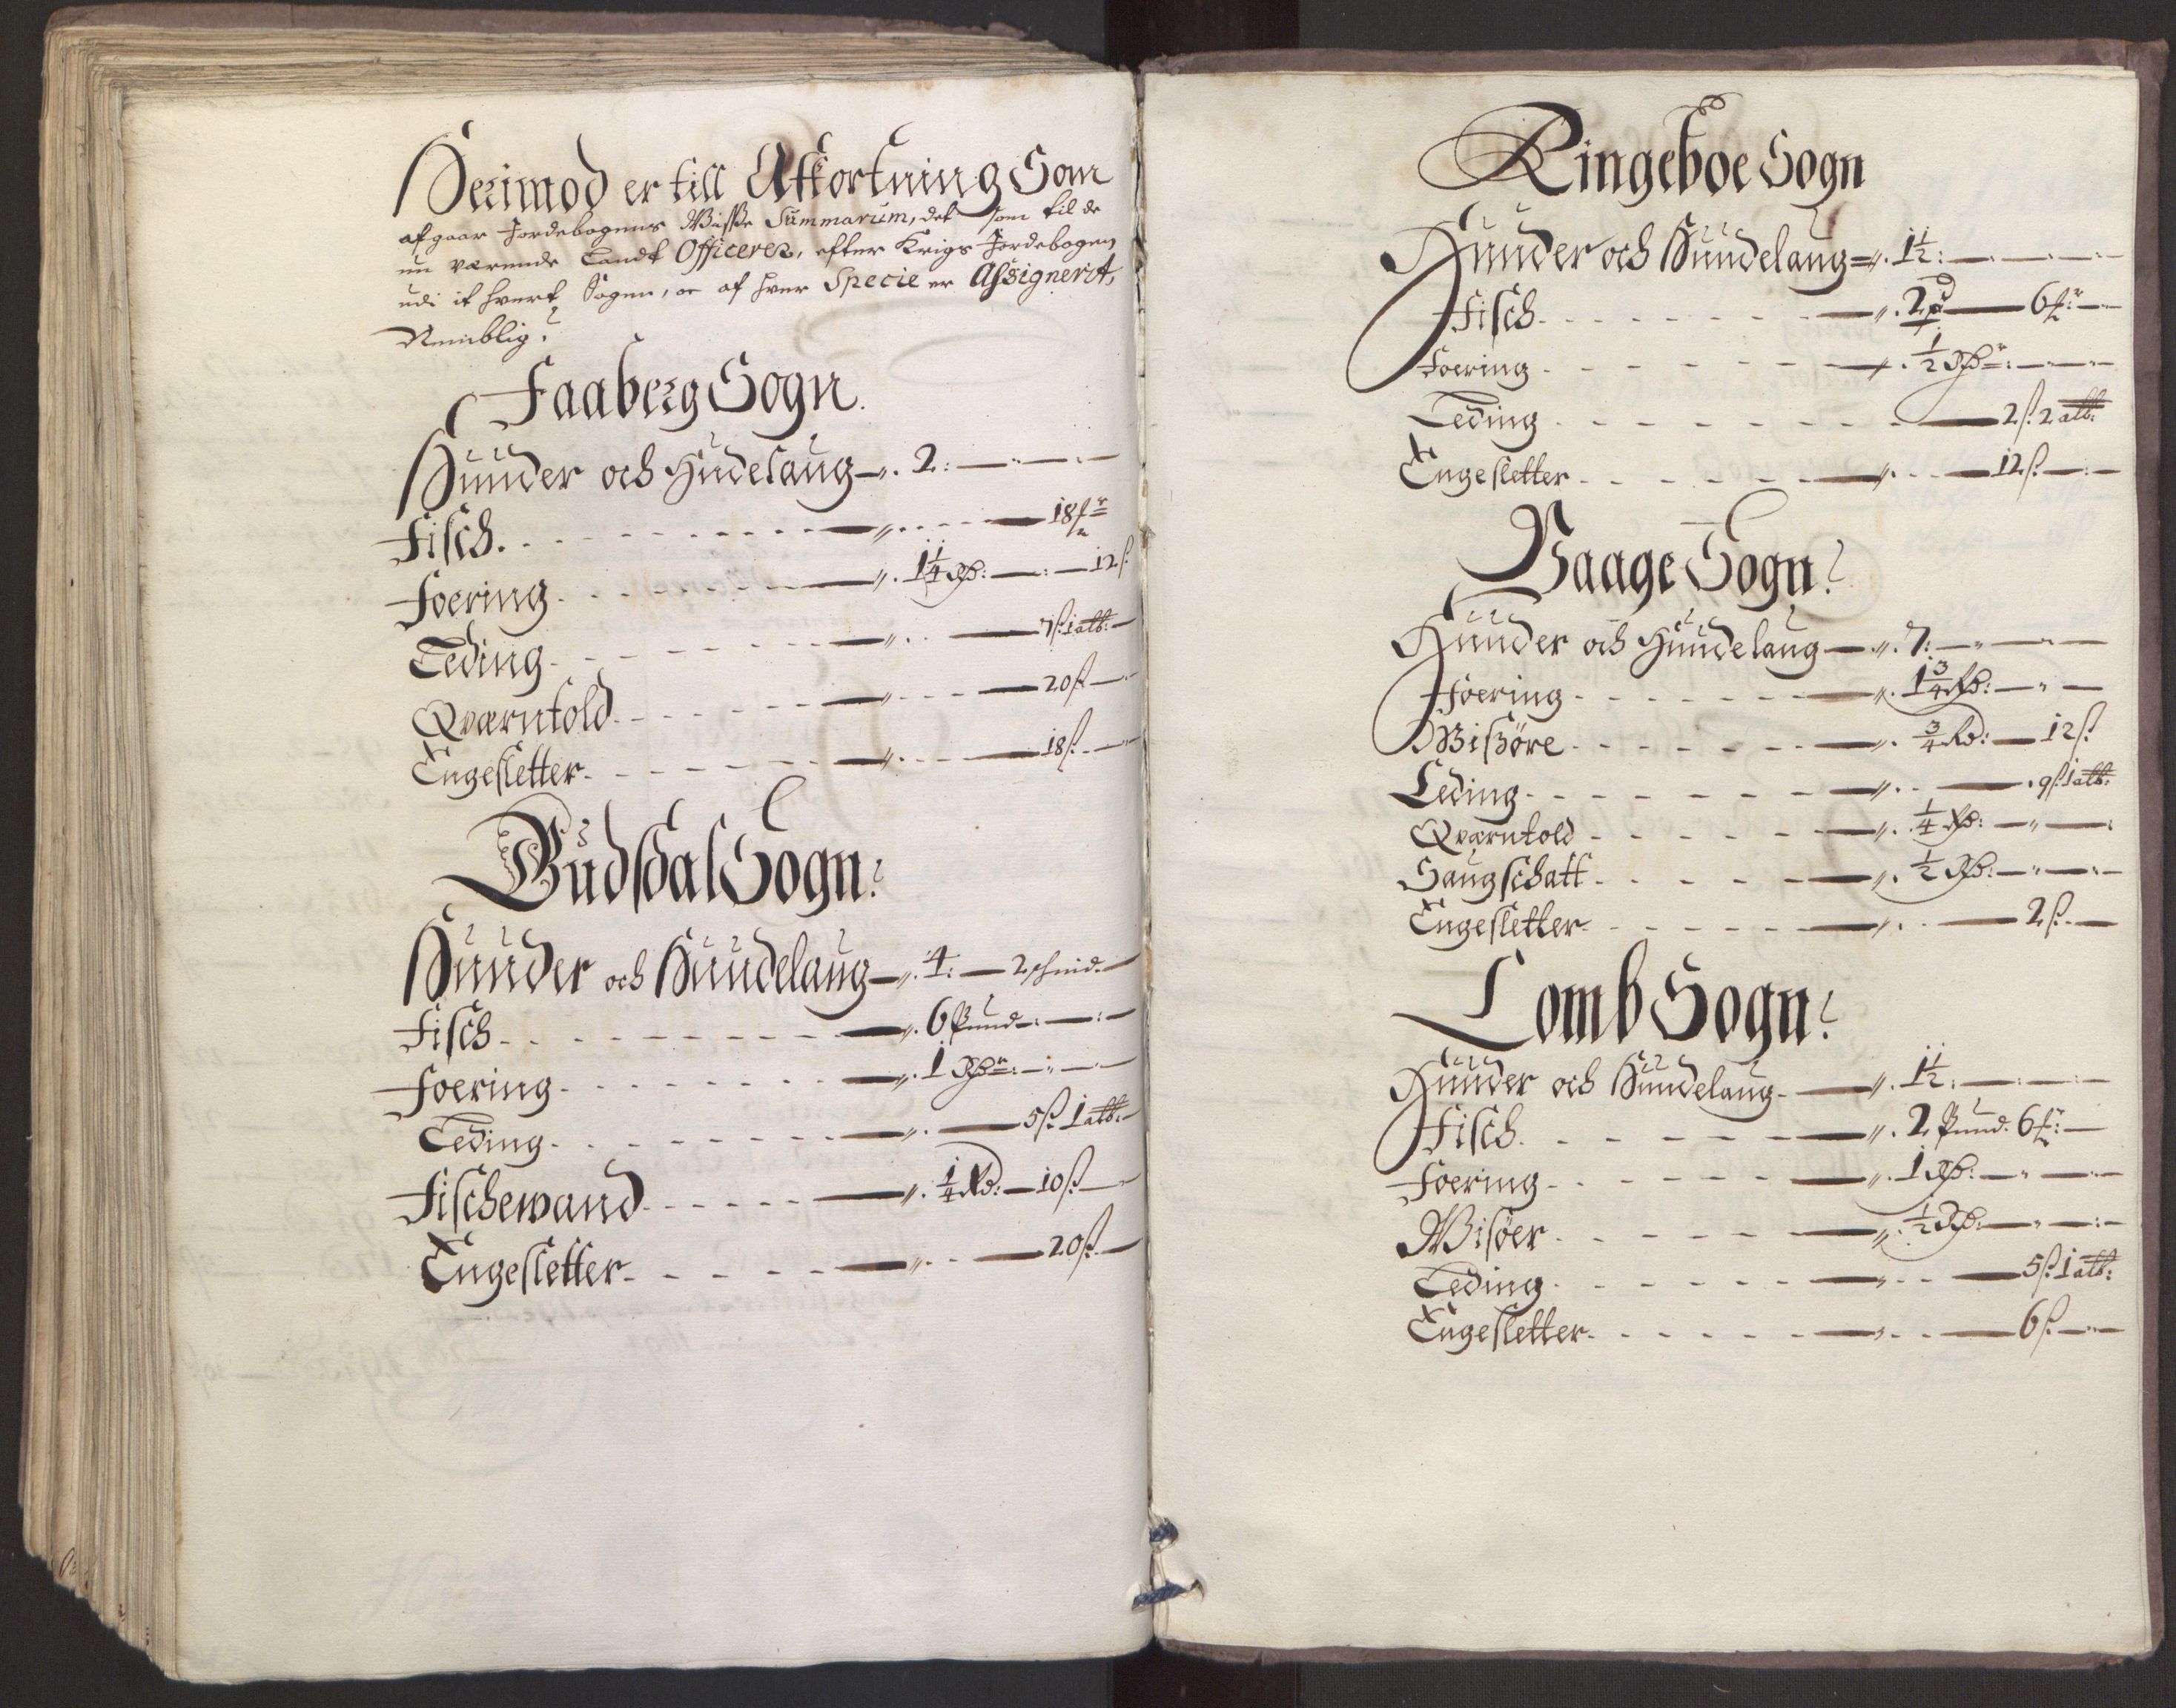 Herimod er till Afkortning Som
afgaar Jordebogens Wisße Summarum, det som til de
nu værende Landt Officerer, efter Krigs Jordebogen
udi it hvert Sogen, oc af hver Specie er Assignerit,
Nemblig?
Faaberg Sogn.
Huuder och Hudelaug — 2:
Fisch. — 18 fr
Foering — 1 1/4 Rd: — 12 ß
Leding — 7 ß 1 alb:
Qværntold — 20 ß
Engesletter — 18 ß
Gudsdal Sogn:
Huuder och Huudelaug — 4: — 2 schind
Fisch — 6 Pund
Foering — 1 Rdr:
Leding — 5 ß 1 alb:
Fischewand — 1/4 Rd: — 10 ß
Engesletter — 20 ß
Ringeboe Sogn
Huuder och Huudelaug — 1 1/2:
Fisch — 2 pd — 6 fr:
Foering — 1/2 Rdr:
Leding — 2 ß 2 alb:
Engesletter — 12 ß
Vaage Sogn:
Huuder och Huudelaug — 7:
Foering — 1 3/4 Rd:
Wißøre — 3/4 Rd: — 12 ß
Leding — 9 ß 1 alb:
Qværntold — 1/4 Rd:
Saugschatt — 1/2 Rd:
Engesletter — 2 ß
Lomb Sogn:
Huuder och Huudelaug — 1 1/2:
Fisch — 2 Pund 6 fr:
Foering — 1 Rd:
Wisøer — 1/2 Rd:
Leding — 5 ß 1 alb:
Engesletter — 6 ß